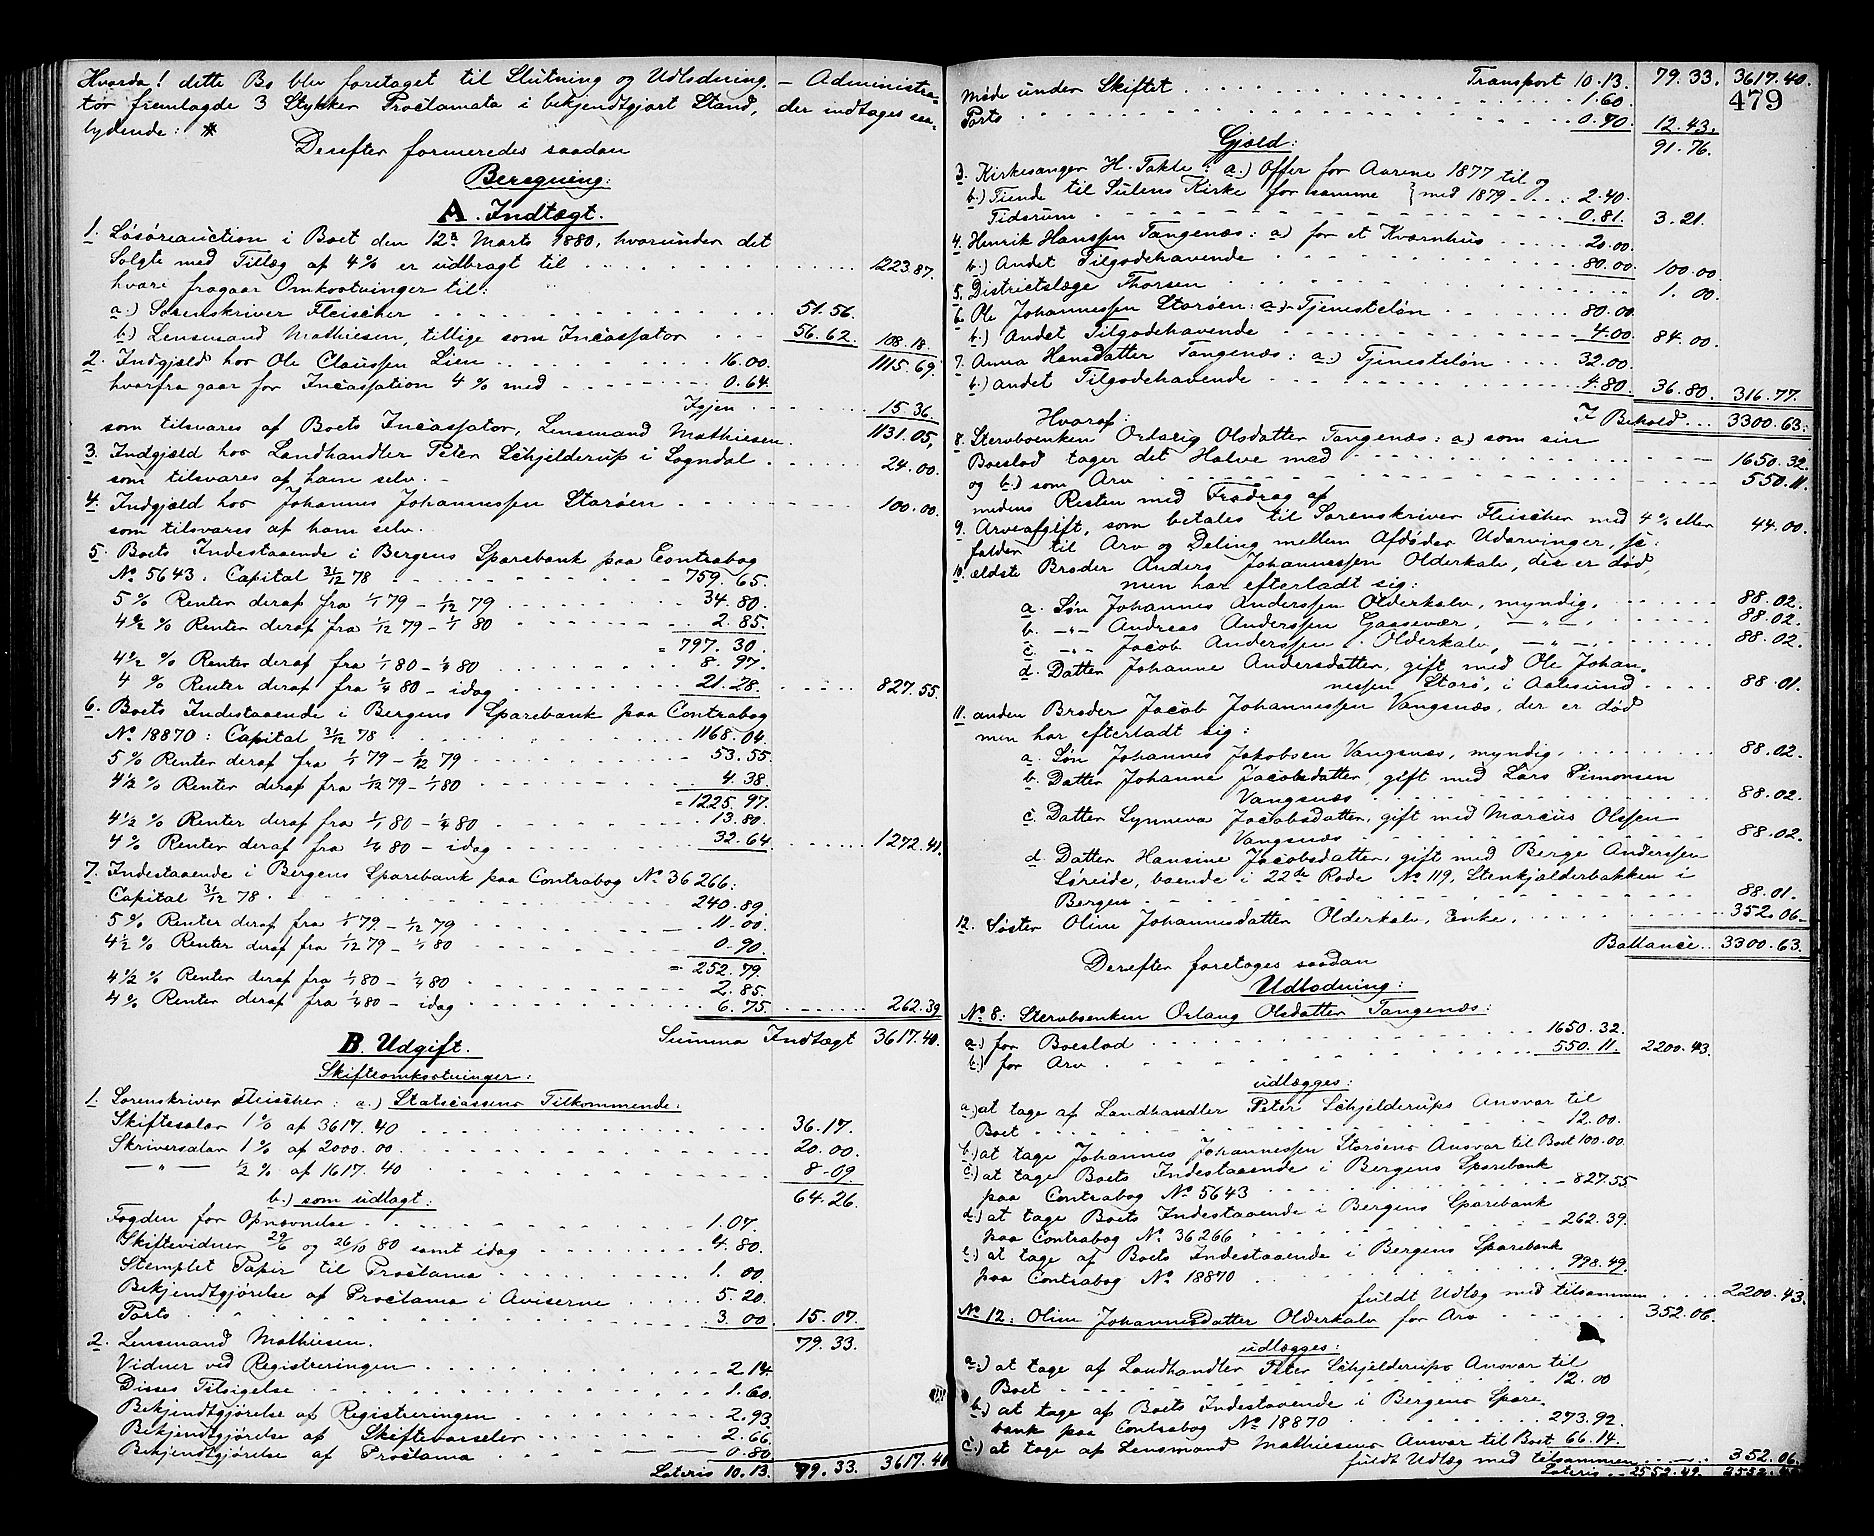 Hvorda! dette Bo blev foretaget til Slutning og Udlodning. – Administra-
tor fremlagde 3 Stykker Proclamata i bekjendtgjort Stand, der indtages saa-
lydende: *
Derefter formeredes saadan
Beregning:
A. Indtægt.
1. Løsøreauction i Boet den 12te Marts 1880, hvorunder det
Solgte med Tillæg af 4% er udbragt til 1223.87.
hvori fragaar Omkostninger til:
a.) Sorenskriver Fleischer 51.56.
b.) Lensmand Mathiesen, tillige som Incassator 56.62. 108.18.
2. Indgjæld hos Ole Claussen Lien 16.00. 1115.69.
hvorfra gaar for Incassation 4% med 0.64.
Igjen 15.36.
som tilsvares af Boets Incassator, Lensmand Mathiesen. 1131.05.
3. Indgjæld hos Landhandler Peter Schjelderup i Sogndal 24.00.
som tilsvares af ham selv. –
4. Indgjæld hos Johannes Johannessen Storøen 100.00.
som tilsvares af ham selv.
5. Boets Indestaaende i Bergens Sparebank paa Contrabog
No 5643: Capital 31/12 78 759.65.
5% Renter deraf fra 1/1 79 – 1/12 79 34.80.
4½% Renter deraf fra 1/12 79 – 1/1 80 2.85.
= 797.30.
4½% Renter deraf fra 1/1 80 – 1/4 80 8.97.
4% Renter deraf fra 1/4 80 – idag 21.28. 827.55
6. Boets Indestaaende i Bergens Sparebank paa Contrabog
No 18870: Capital 31/12 78 1168.04.
5% Renter deraf fra 1/1 79 – 1/12 79 53.55
4½% Renter deraf fra 1/12 79 – 1/1 80 4.38.
= 1225.97.
4½% Renter deraf fra 1/1 80 – 1/4 80 13.80.
4% Renter deraf fra 1/4 80 – idag 32.64 1272.41.
7. Indestaaende i Bergens Sparebank paa Contrabog No 36266:
Capital 31/12 78 240.89
5% Renter deraf fra 1/1 79 – 1/12 79 11.00.
4½% Renter deraf fra 1/12 79 – 1/1 80 0.90.
= 252.79.
4½% Renter deraf fra 1/1 80 – 1/4 80 2.85.
4% Renter deraf fra 1/4 80 – idag 6.75. 262.39
Summa Indtægt 3617.40.
B. Udgift.
Skifteomkostninger:
1. Sorenskriver Fleischer: a.) Statscassens Tilkommende:
Skiftesalar 1% af 3617.40 36.17.
Skriversalar 1% af 2000.00 20.00.
–"– ½% af 1617.40 8.09
64.26.
b.) som udlagt:
Fogden for Opnævnelse 1.07.
Skiftevidner 29/6 og 26/10 80 samt idag 4.80.
Stemplet Papir til Proclama 1.00
Bekjendtgjørelse af Proclama i Aviserne 5.20.
Porto 3.00 15.07.
2. Lensmand Mathiesen. 79.33.
Vidner ved Registreringen 2.14.
Disses Tilsigelse 1.60.
Bekjendtgjørelse af Registreringen 2.93
Bekjendtgjørelse af Skiftevarseler 2.66
Bekjendtgjørelse af Proclama 0.80
Lateris 10.13. 79.33. 3617.40
Transport 10.13. 79.33. 3617.40.
479
Møde under Skiftet 1.60.
Porto 0.70 12.43.
Gjæld: 91.76.
3. Kirkesanger H. Takle: a.) Offer for Aarene 1877 til og
b.) Tiende til Sulens Kirke for samme } med 1879 2.40.
Tidsrum 0.81. 3.21.
4. Henrik Hanssen Tangenæs: a) for et Kværnhus 20.00.
b.) Andet Tilgodehavende 80.00 100.00
5. Districtslæge Thorsen 1.00.
6. Ole Johannessen Storøen: a.) Tjenesteløn 80.00.
b.) Andet Tilgodehavende 4.00 84.00.
7. Anna Hansdatter Tangenæs: a.) Tjenesteløn 32.00.
b.) andet Tilgodehavende 4.80. 36.80. 316.77.
Hvoraf: I Behold 3300.63.
8. Stervboenken Orlaug Olsdatter Tangenæs: a) som sin
Boeslod tager det Halve med 1650.32.
og b.) som Arv 550.11.
medens Resten med Fradrag af
9. Arveafgift, som betales til Sorenskriver Fleischer med 4% eller 44.00.
falder til Arv og Deling mellem Afdødes Udarvinger, sc:
10. ældste Broder Anders Johannessen Olderkalv, der er død,
men har efterladt sig:
a. Søn Johannes Anderssen Olderkalv, myndig, 88.02.
b. –"– Andreas Anderssen Gaasevær, –"–, 88.02.
c. –"– Jacob Anderssen i Olderkalv, –"–, 88.02.
d. Datter Johanne Andersdatter, gift med Ole Johan-
nessen Storø, i Aalesund 88.01.
11. anden Broder Jacob Johannessen Vangsnæs, der er død
men har efterladt sig:
a. Søn Johannes Jakobsen Vangsnæs, myndig, 88.02.
b. Datter Johanne Jacobsdatter, gift med Lars Simonsen
Vangsnæs 88.02.
c. Datter Synneva Jacobsdatter, gift med Marcus Olssen
Vangsnæs 88.02.
d. Datter Hansine Jacobsdatter, gift med Berge Anderssen
Søreide, boende i 22de Rode No 119, Stenkjælderbakken i
Bergen 88.01.
12. Søster Oline Johannesdatter Olderkalv, Enke, 352.06.
Ballance 3300.63.
Derefter foretoges saadan
Udlodning:
No 8: Stervboenken Orlaug Olsdatter Tangenæs:
a.) for Boeslod 1650.32.
b.) for Arv 550.11. 2200.43.
udlægges:
a.) at tage af Landhandler Peter Schjelderups Ansvar til
Boet 12.00.
b.) at tage Johannes Johannessen Storøens Ansvar til Boet 100.00
c.) at tage Boets Indestaaende i Bergens Sparebank
paa Contrabog No 5643 827.55
d.) at tage Boets Indestaaende i Bergens Sparebank
paa Contrabog No 36266 262.39.
e.) at tage af Boets Indestaaende i Bergens Sparebank
paa Contrabog No 18870 998.49.
fuldt Udlæg med tilsammen 2200.43.
No 12: Oline Johannesdatter Olderkalv for Arv 352.06.
udlægges:
a.) at tage af Landhandler Peter Schjelderups Ansvar til
Boet 12.00
b.) at tage af Boets Indestaaende i Bergens Spare-
bank paa Contrabog No 18870 273.92.
c.) at tage af Lensmand Mathiesens Ansvar til Boet 66.14.
fuldt Udlæg med tilsammen 352.06.
Lateris 2552.49. 2552.49